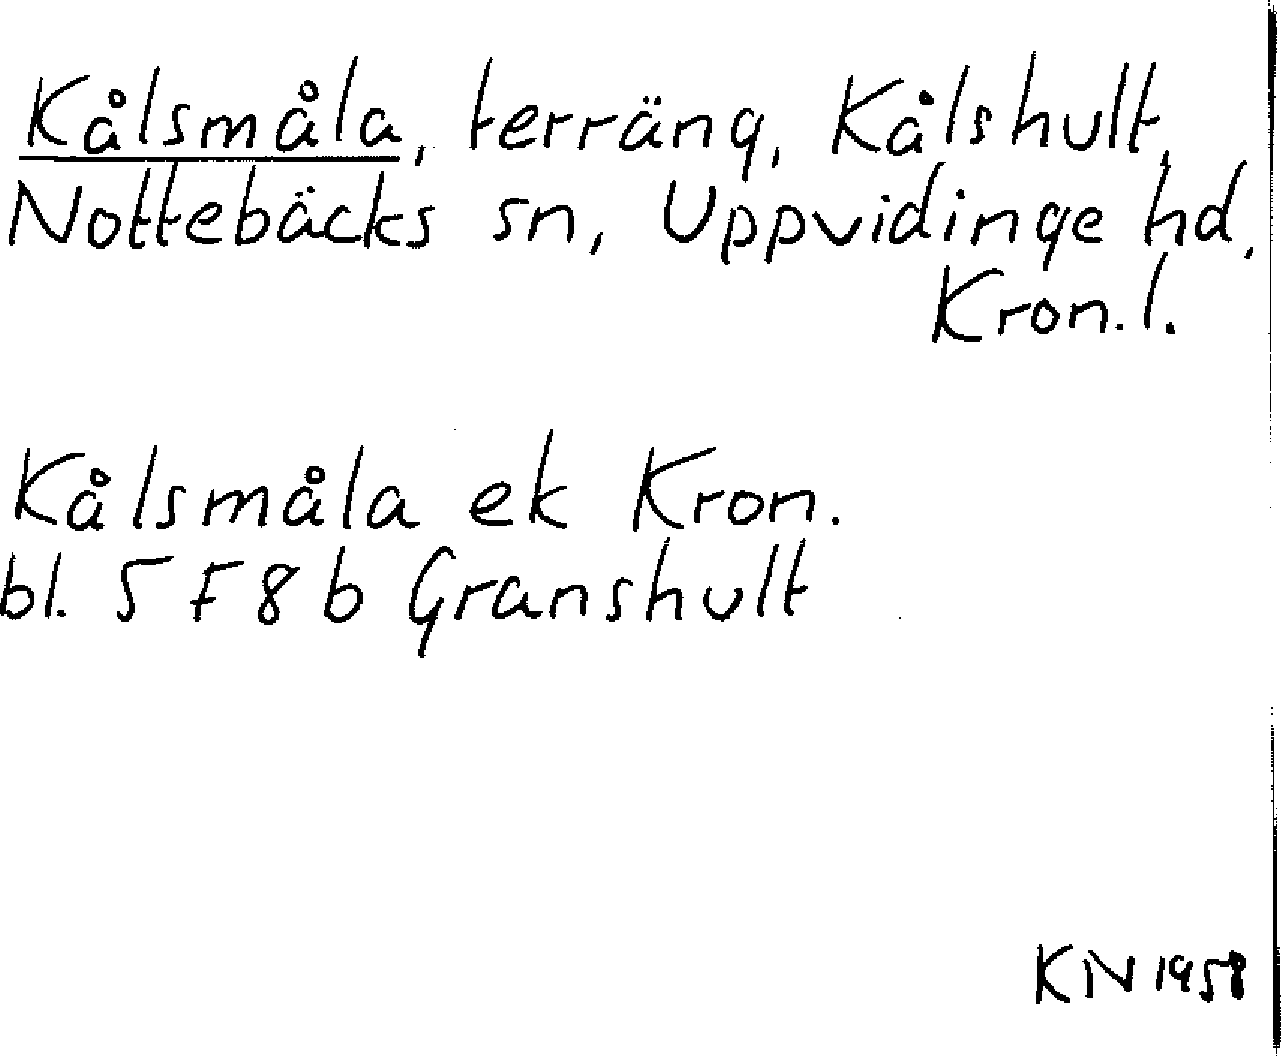 Kålsmåla, terräng, Kålshult,
Nottebäcks sn, Uppvidinge hd,
Kron. l.
Kålsmåla ek Kron.
bl. 5 F 8 b Granshult
KN 1958